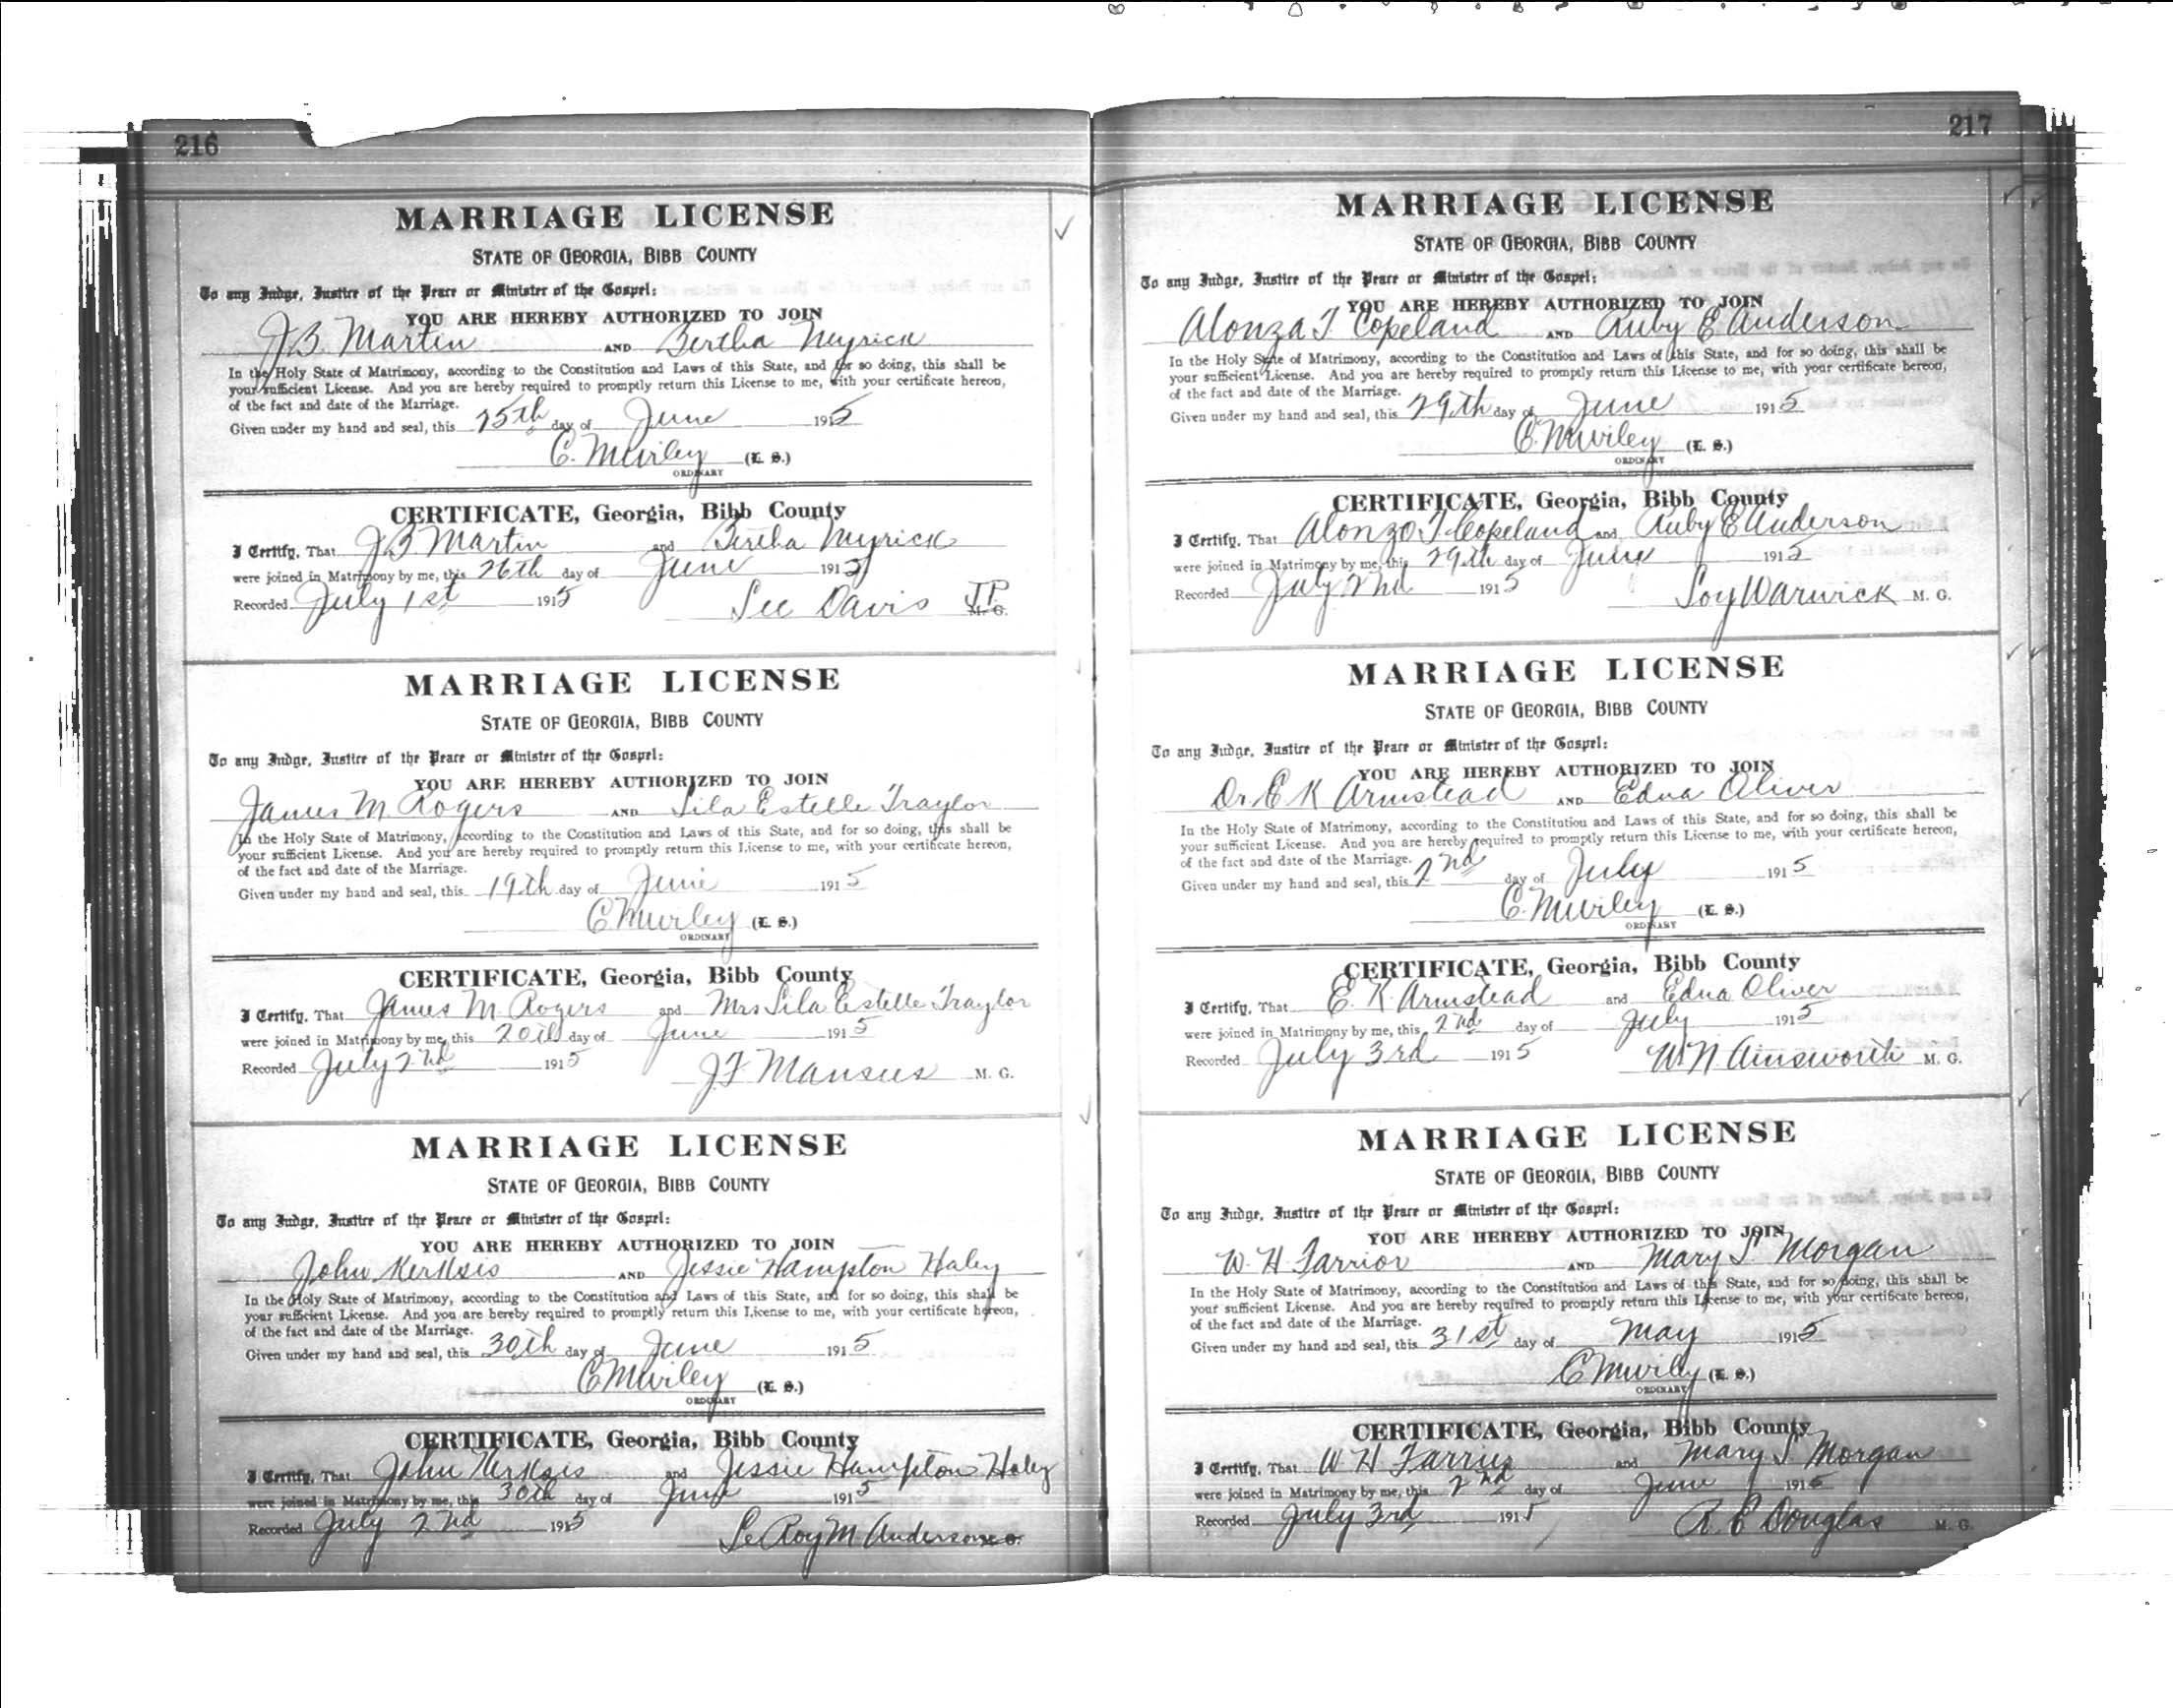 216
MARRIAGE LICENSE
STATE OF GEORGIA, BIBB COUNTY
To any Judge, Justice of the Peace or Minister of the Gospel:
YOU ARE HEREBY AUTHORIZED TO JOIN
J.B. Martin AND Bertha Myrick
In the Holy State of Matrimony, according to the Constitution and Laws of this State, and for so doing, this shall be
your sufficient License. And you are hereby required to promptly return this License to me, with your certificate hereon,
of the fact and date of the Marriage.
Given under my hand and seal, this 25th day of June 1915
C. M Wiley (L. S.)
ORDINARY
CERTIFICATE, Georgia, Bibb County
I Certify, That J B Martin and Bertha Myrick
were joined in Matrimony by me, this 26th day of June 1915
Recorded July 1st 1915 Lee Davis J.P. M. G.
MARRIAGE LICENSE
STATE OF GEORGIA, BIBB COUNTY
To any Judge, Justice of the Peace or Minister of the Gospel:
YOU ARE HEREBY AUTHORIZED TO JOIN
James M Rogers AND Lila Estelle Traylor
In the Holy State of Matrimony, according to the Constitution and Laws of this State, and for so doing, this shall be
your sufficient License. And you are hereby required to promptly return this License to me, with your certificate hereon,
of the fact and date of the Marriage.
Given under my hand and seal, this 19th day of June 1915
C M Wiley (L. S.)
ORDINARY
CERTIFICATE, Georgia, Bibb County
I Certify, That James M Rogers and Mrs Lila Estelle Traylor
were joined in Matrimony by me, this 20th day of June 1915
Recorded July 2nd 1915 J F M. G.
MARRIAGE LICENSE
STATE OF GEORGIA, BIBB COUNTY
To any Judge, Justice of the Peace or Minister of the Gospel:
YOU ARE HEREBY AUTHORIZED TO JOIN
John Kerksis AND Jessie Hampton Haley
In the Holy State of Matrimony, according to the Constitution and Laws of this State, and for so doing, this shall be
your sufficient License. And you are hereby required to promptly return this License to me, with your certificate hereon,
of the fact and date of the Marriage.
Given under my hand and seal, this 30th day of June 1915
C M Wiley (L. S.)
ORDINARY
CERTIFICATE, Georgia, Bibb County
I Certify, That John Kerksis and Jessie Hampton Haley
were joined in Matrimony by me, this 30th day of June 1915
Recorded July 2nd 1915 Le Roy M Anderson M. G.
217
MARRIAGE LICENSE
STATE OF GEORGIA, BIBB COUNTY
To any Judge, Justice of the Peace or Minister of the Gospel:
YOU ARE HEREBY AUTHORIZED TO JOIN
Alonza T Copeland AND Ruby E Anderson
In the Holy State of Matrimony, according to the Constitution and Laws of this State, and for so doing, this shall be
your sufficient License. And you are hereby required to promptly return this License to me, with your certificate hereon,
of the fact and date of the Marriage.
Given under my hand and seal, this 29th day of June 1915
C. M Wiley (L. S.)
ORDINARY
CERTIFICATE, Georgia, Bibb County
I Certify, That Alonzo T Copeland and Ruby E Anderson
were joined in Matrimony by me, this 29th day of June 1915
Recorded July 2nd 1915 Loy Warwick M. G.
MARRIAGE LICENSE
STATE OF GEORGIA, BIBB COUNTY
To any Judge, Justice of the Peace or Minister of the Gospel:
YOU ARE HEREBY AUTHORIZED TO JOIN
Dr. E K Armstead AND Edna Oliver
In the Holy State of Matrimony, according to the Constitution and Laws of this State, and for so doing, this shall be
your sufficient License. And you are hereby required to promptly return this License to me, with your certificate hereon,
of the fact and date of the Marriage.
Given under my hand and seal, this 2nd day of July 1915
C. M Wiley (L. S.)
ORDINARY
CERTIFICATE, Georgia, Bibb County
I Certify, That E. K. Armstead and Edna Oliver
were joined in Matrimony by me, this 2nd day of July 1915
Recorded July 3rd 1915 W. N Ainsworth M. G.
MARRIAGE LICENSE
STATE OF GEORGIA, BIBB COUNTY
To any Judge, Justice of the Peace or Minister of the Gospel:
YOU ARE HEREBY AUTHORIZED TO JOIN
W. H Farrior AND Mary L Morgan
In the Holy State of Matrimony, according to the Constitution and Laws of this State, and for so doing, this shall be
your sufficient License. And you are hereby required to promptly return this License to me, with your certificate hereon,
of the fact and date of the Marriage.
Given under my hand and seal, this 31st day of May 1915
C M Wiley (L. S.)
ORDINARY
CERTIFICATE, Georgia, Bibb County
I Certify, That W H and Mary L Morgan
were joined in Matrimony by me, this 2nd day of June 1915
Recorded July 3rd 1915 R. E Douglas M. G.